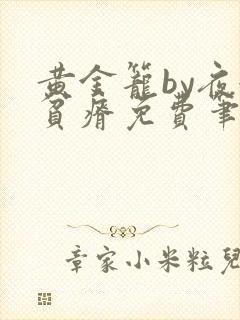 黄金籠by夜
貧瘠免費筆
章家小米粒兒